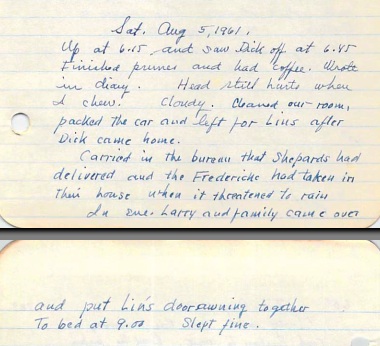 Sat. Aug 5, 1961.
Up at 6.15 and saw Dick off at 6.45
Finished prunes and had coffee. Wrote
in diary. Head still hurts when
I chew. Cloudy. Cleaned our room,
packed the car and left for Lins after
Dick came home.
Carried in the bureau that Shepards had
delivered and the Fredericks had taken in
their house when it threatened to rain
In eve. Larry and family came over
and put Lin's doorawning together
To bed at 9.00 Slept fine.